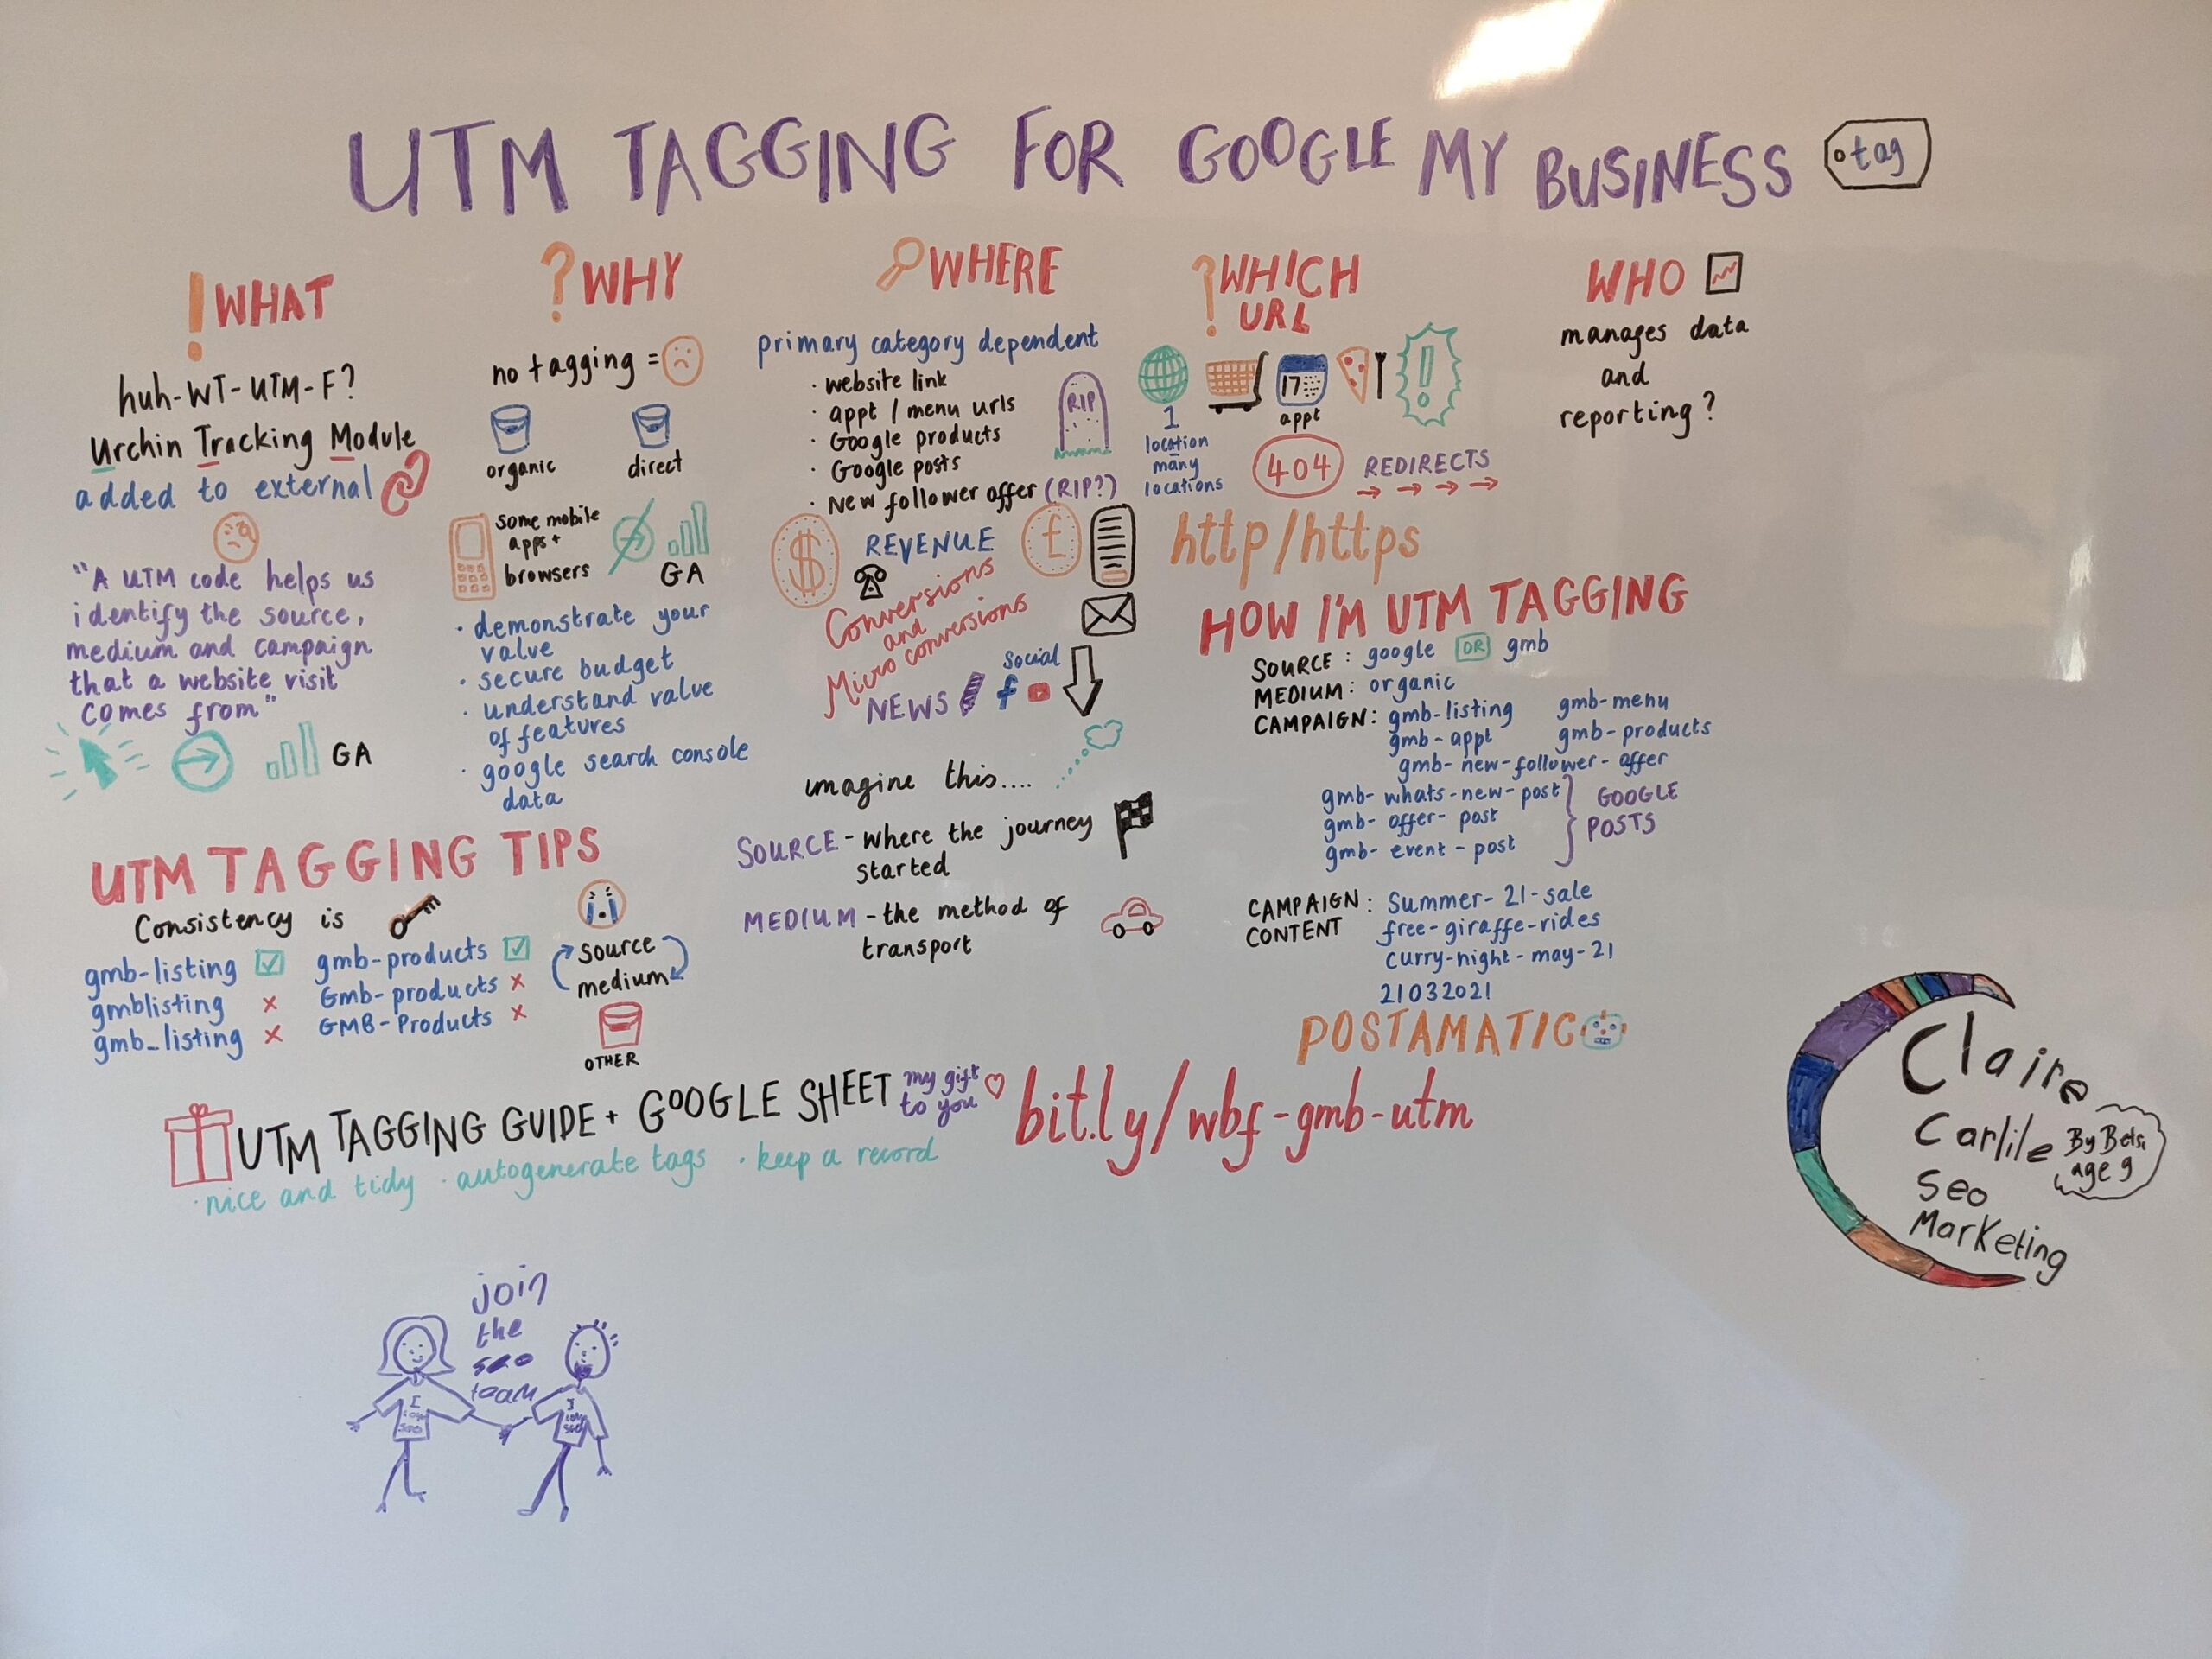 UTM TAGGING FOR GOOGLE MY BUSINESS
tag
! WHAT
huh-WT-UTM-F?
Urchin Tracking Module
added to external
"A UTM code helps us
identify the source,
medium and campaign
that a website visit
comes from"
GA
? WHY
no tagging =
organic
direct
some mobile
apps +
browsers
GA
· demonstrate your
value
· secure budget
· understand value
of features
· google search console
data
WHERE
primary category dependent
· website link
· appt / menu urls
· Google products
· Google posts
· New follower offer (RIP?)
RIP
$
REVENUE
£
Conversions
and
Micro conversions
Social
NEWS
f
imagine this....
SOURCE - where the journey
started
MEDIUM - the method of
transport
? WHICH
URL
17
appt
!
1
location
many
locations
404
REDIRECTS
http/https
WHO
manages data
and
reporting?
HOW I'M UTM TAGGING
SOURCE: google OR gmb
MEDIUM: organic
CAMPAIGN: gmb-listing gmb-menu
gmb-appt gmb-products
gmb-new-follower-offer
gmb-whats-new-post
gmb-offer-post
gmb-event-post
GOOGLE
POSTS
CAMPAIGN : Summer-21-sale
CONTENT free-giraffe-rides
curry-night-may-21
21032021
POSTAMATIC
UTM TAGGING TIPS
Consistency is
gmb-listing ☑ gmb-products ☑
gmblisting x Gmb-products x
gmb_listing x GMB-Products x
source
medium
OTHER
UTM TAGGING GUIDE + GOOGLE SHEET
my gift
to you
bit.ly/wbf-gmb-utm
· nice and tidy · autogenerate tags · keep a record
Claire
Carlile
Seo
Marketing
By
age 9
join
the
seo
team
I
I